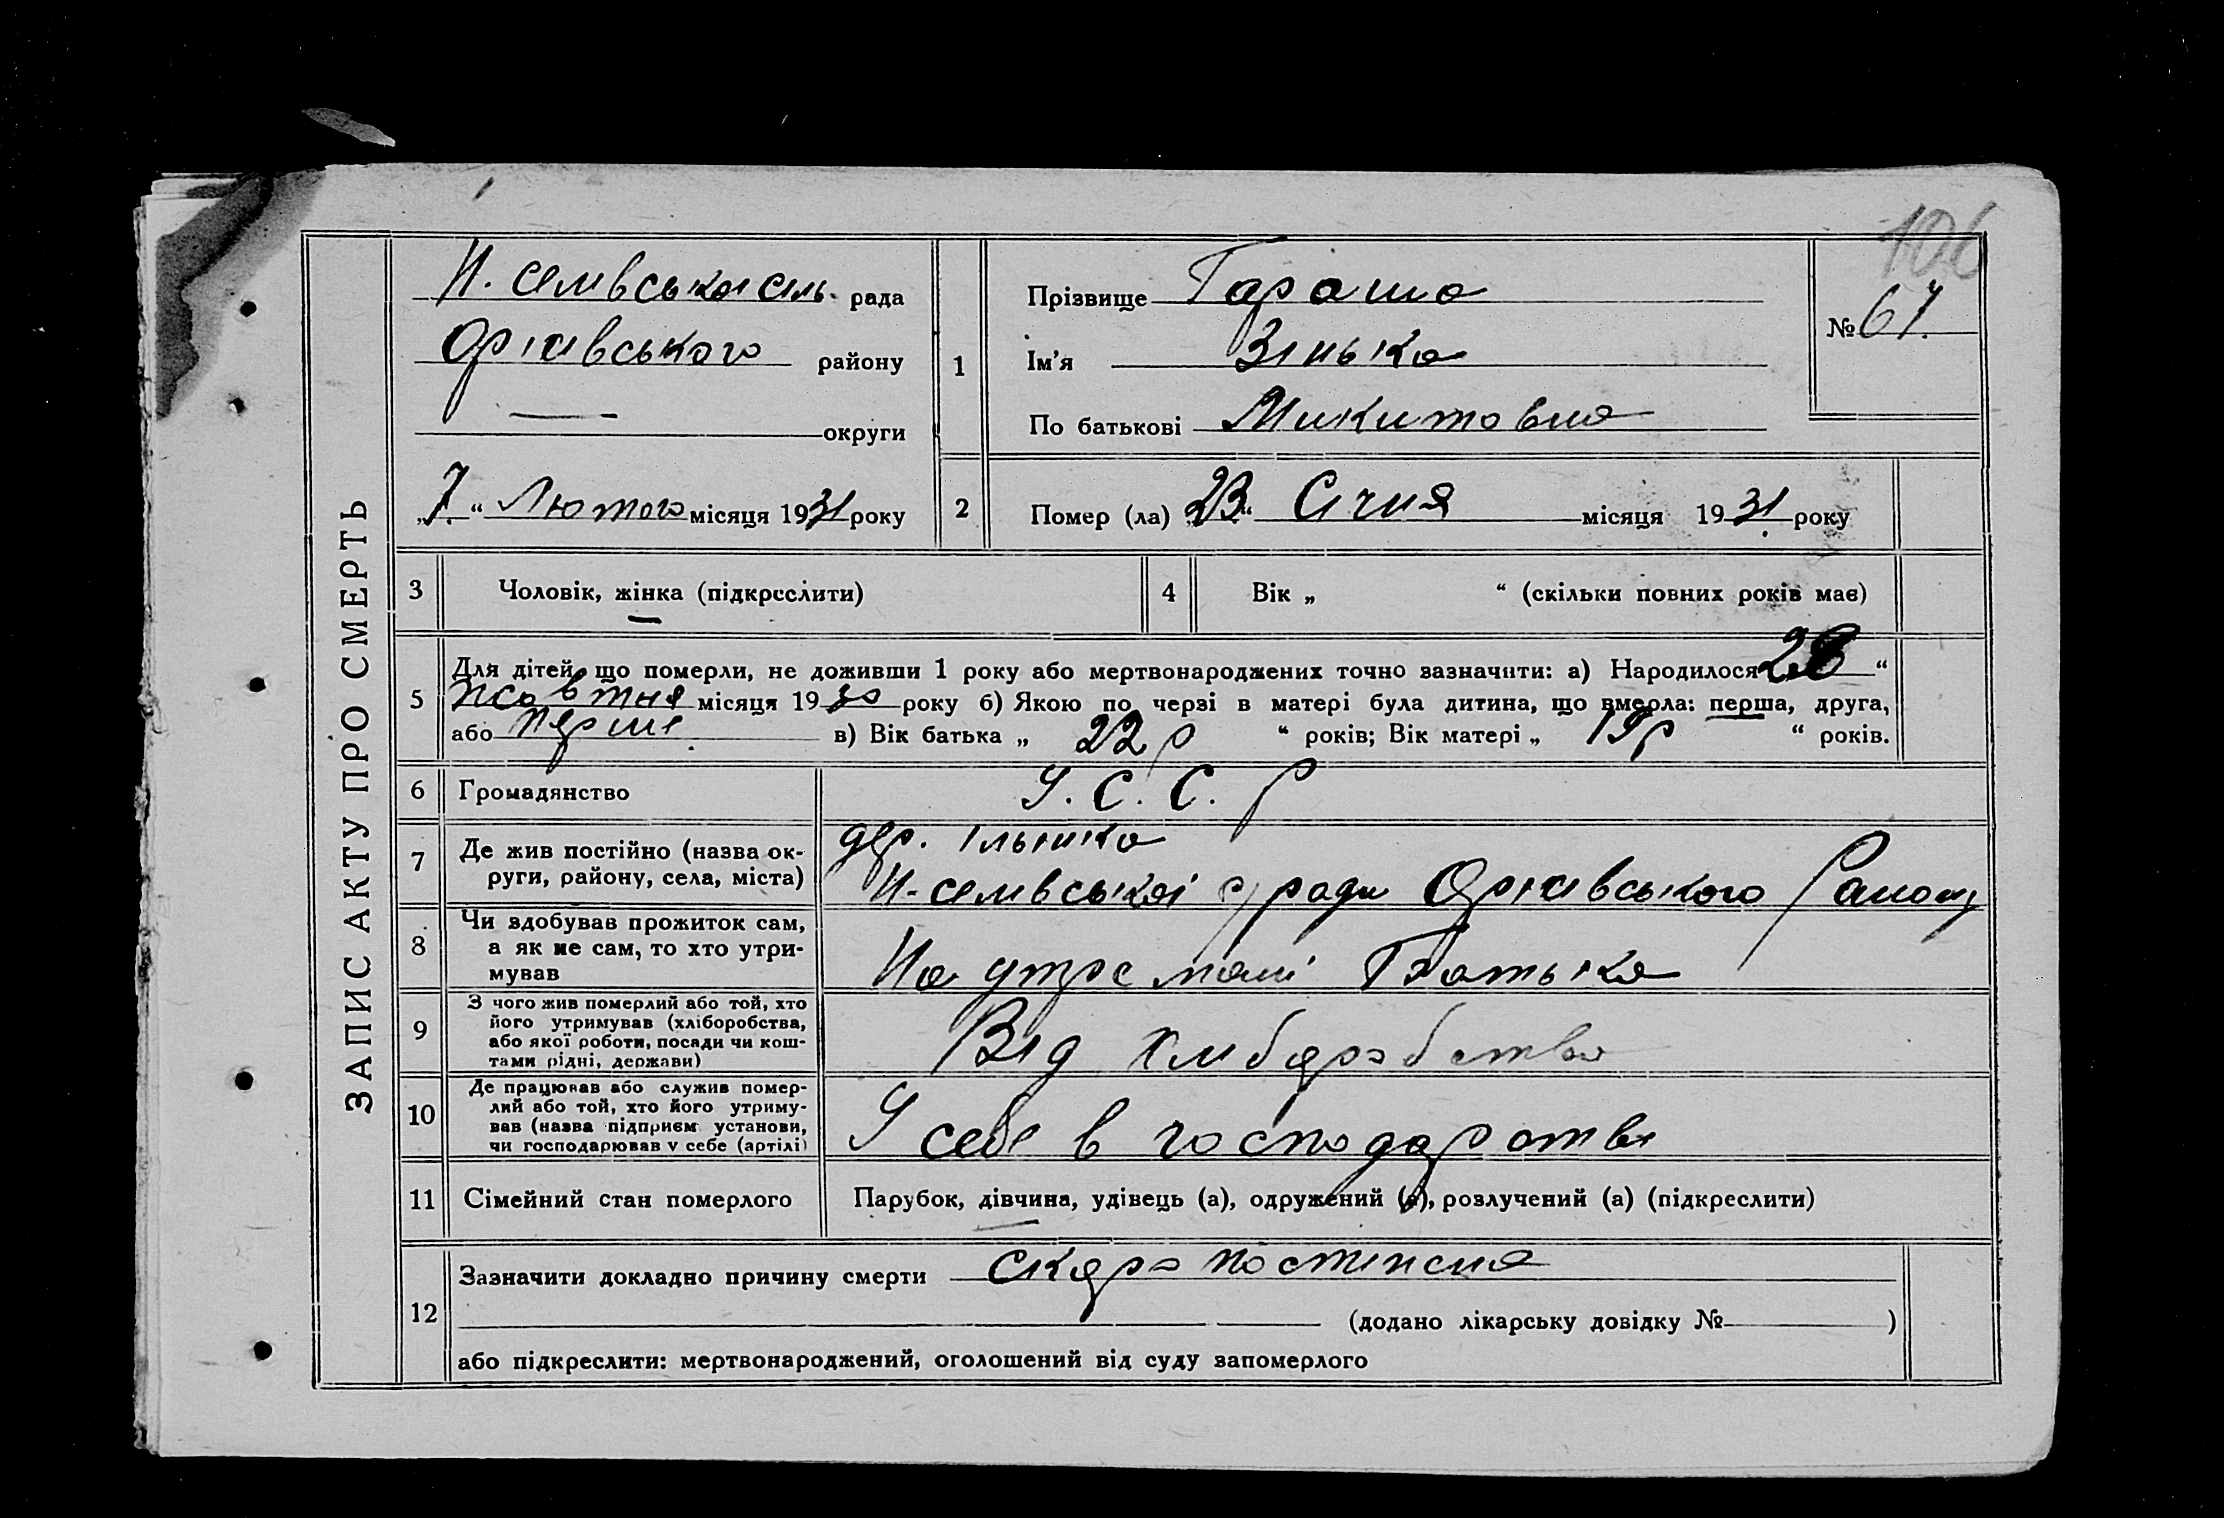 106
ЗАПИС АКТУ ПРО СМЕРТЬ
Н. селівської сіль. рада
Оріхівського району
— округи
„7“ Лютого місяця 1931 року
1
Прізвище Гараша
Ім'я Зінька
По батькові Микитовна
№ 67.
2
Помер (ла) „23“ Січня місяця 1931 року
3 Чоловік, жінка (підкреслити)
4 Вік „ “ (скільки повних років має)
5 Для дітей, що померли, не доживши 1 року або мертвонароджених точно зазначити: а) Народилося „28“
жовтня місяця 1930 року б) Якою по черзі в матері була дитина, що вмерла: перша, друга,
або перше в) Вік батька „ 22 р “ років; Вік матері „ 19 р “ років.
6 Громадянство У. С. С. Р
7 Де жив постійно (назва округи, району, села, міста)
дер.
Н-селівської с/ради Оріхівського Району
8 Чи здобував прожиток сам,
а як не сам, то хто утри-
мував
На утрємані Батька
9 З чого жив померлий або той, хто
його утримував (хліборобства,
або якої роботи, посади чи кош-
тами рідні, держави)
Від хліборобства
10 Де працював або служив помер-
лий або той, хто його утриму-
вав (назва підприєм. установи,
чи господарював у себе (артілі)
У себе в господарстві
11 Сімейний стан померлого Парубок, дівчина, удівець (а), одружений (а), розлучений (а) (підкреслити)
12 Зазначити докладно причину смерти скоро
(додано лікарську довідку № )
або підкреслити: мертвонароджений, оголошений від суду запомерлого